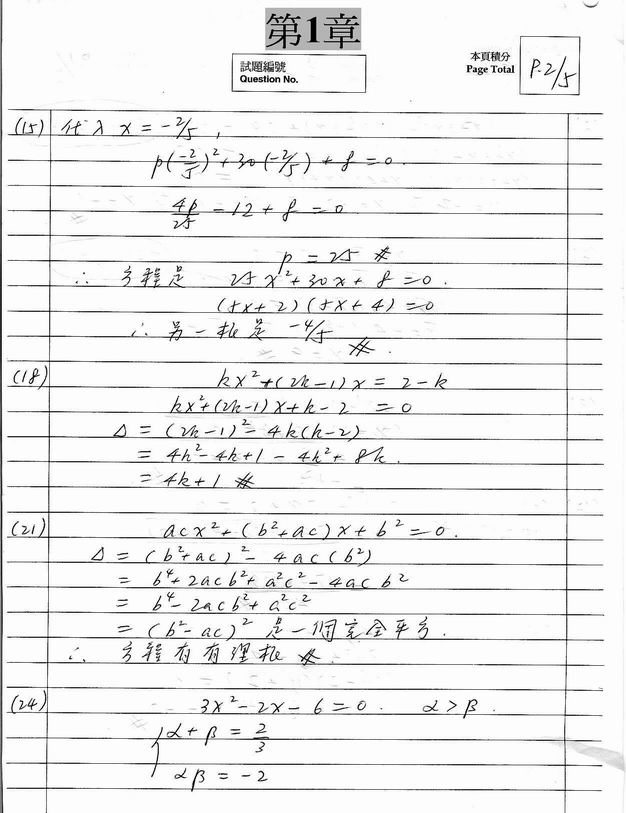 第1章
試題編號
Question No.
本頁積分
Page Total
P.2/5
(15) 代入 x = -2/5,
p(-2/5)² + 30(-2/5) + 8 = 0.
4p/25 - 12 + 8 = 0
p = 25 #
∴ 方程是 25x² + 30x + 8 = 0.
(5x+2)(5x+4) = 0
∴ 另一根是 -4/5 #.
(18) kx² + (2k-1)x = 2-k
kx² + (2k-1)x + k-2 = 0
Δ = (2k-1)² - 4k(k-2)
= 4k² - 4k + 1 - 4k² + 8k.
= 4k + 1 #
(21) acx² + (b²+ac)x + b² = 0.
Δ = (b²+ac)² - 4ac(b²)
= b⁴ + 2acb² + a²c² - 4acb²
= b⁴ - 2acb² + a²c²
= (b²-ac)² 是一個完全平方.
∴ 方程有有理根 #.
(24) 3x² - 2x - 6 = 0. α > β.
{ α + β = 2/3
αβ = -2